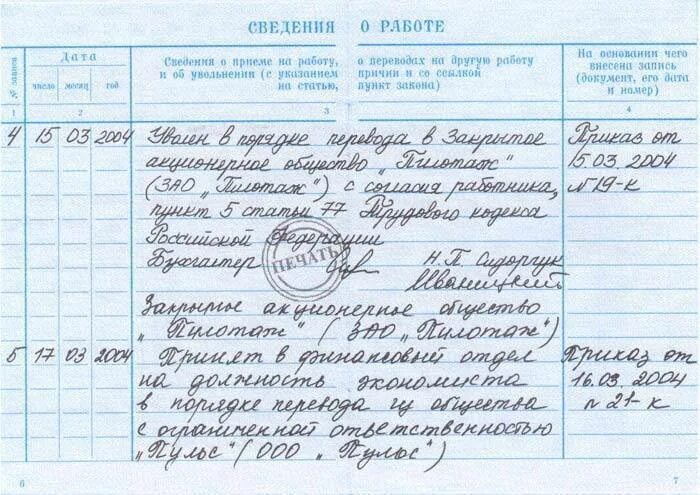 СВЕДЕНИЯ О РАБОТЕ
№ записи
Дата
Сведения о приеме на работу, о переводах на другую работу
и об увольнении (с указанием причин и со ссылкой
на статью, пункт закона)
На основании чего
внесена запись
(документ, его дата
и номер)
число месяц год
1 2 3 4
4 15 03 2004 Уволен в порядке перевода в Закрытое Приказ от
акционерное общество „Пилотаж" 15.03.2004
(ЗАО „Пилотаж") с согласия работника, №19-к
пункт 5 статьи 77 Трудового кодекса
Российской Федерации
Бухгалтер Н.П. Сидорчук
ПЕЧАТЬ
Иваницкий
Закрытое акционерное общество
„Пилотаж" (ЗАО „Пилотаж")
5 17 03 2004 Принят в финансовый отдел Приказ от
на должность экономиста 16.03.2004
в порядке перевода из общества № 21-к
с ограниченной ответственностью
„Пульс" (ООО „Пульс")
6 7